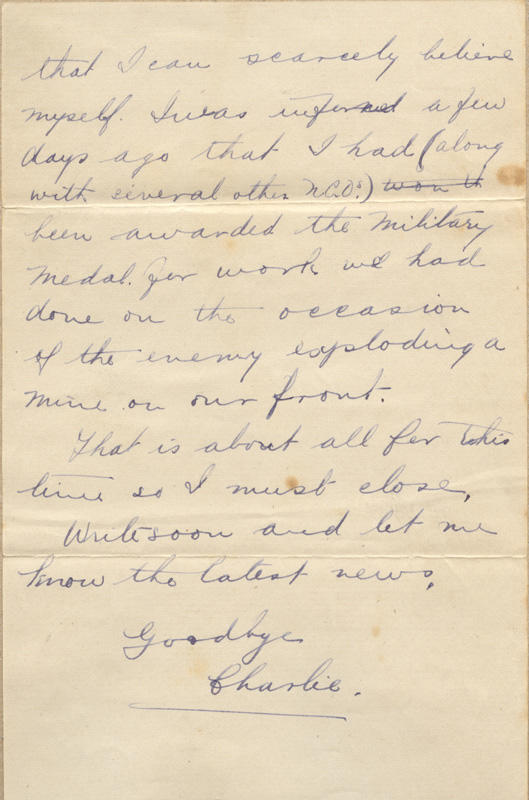 that I can scarcely believe
myself. I was informed a few
days ago that I had (along
with several other N.C.O's.) won th
been awarded the Military
Medal. for work we had
done on the occasion
of the enemy exploding a
mine on our front.
That is about all for this
time so I must close.
Write soon and let me
know the latest news.
Goodbye
Charlie.